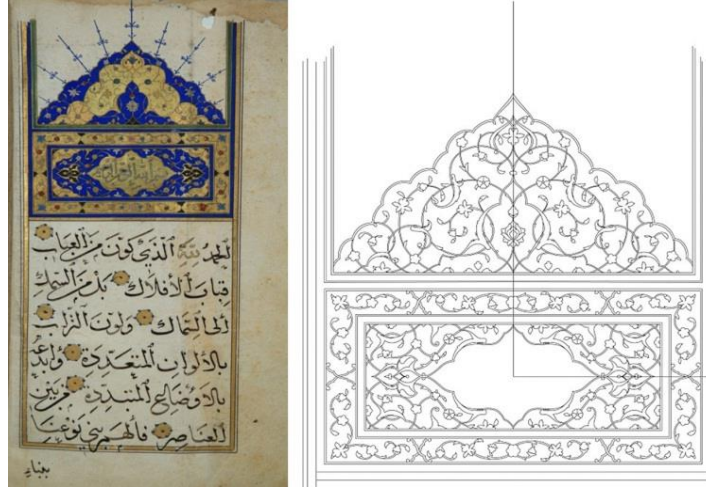 بسم الله الرحمن الرحيم
الحمد لله الذي كون من العباب
قباب الافلاك بل من السمك
الى السماك ولون التراب
بالالوان المتعددة
بالاوضاع المتبددة
العناصر فالهم بني نوعنا